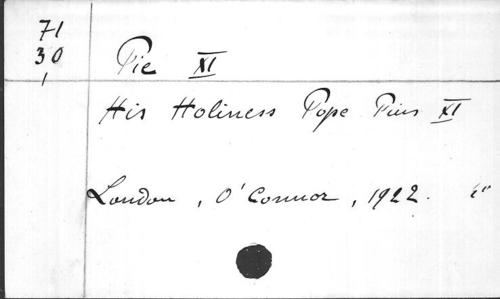 71
30
1
Pie XI
His Holiness Pope Pius XI
London, O'Connor, 1922.